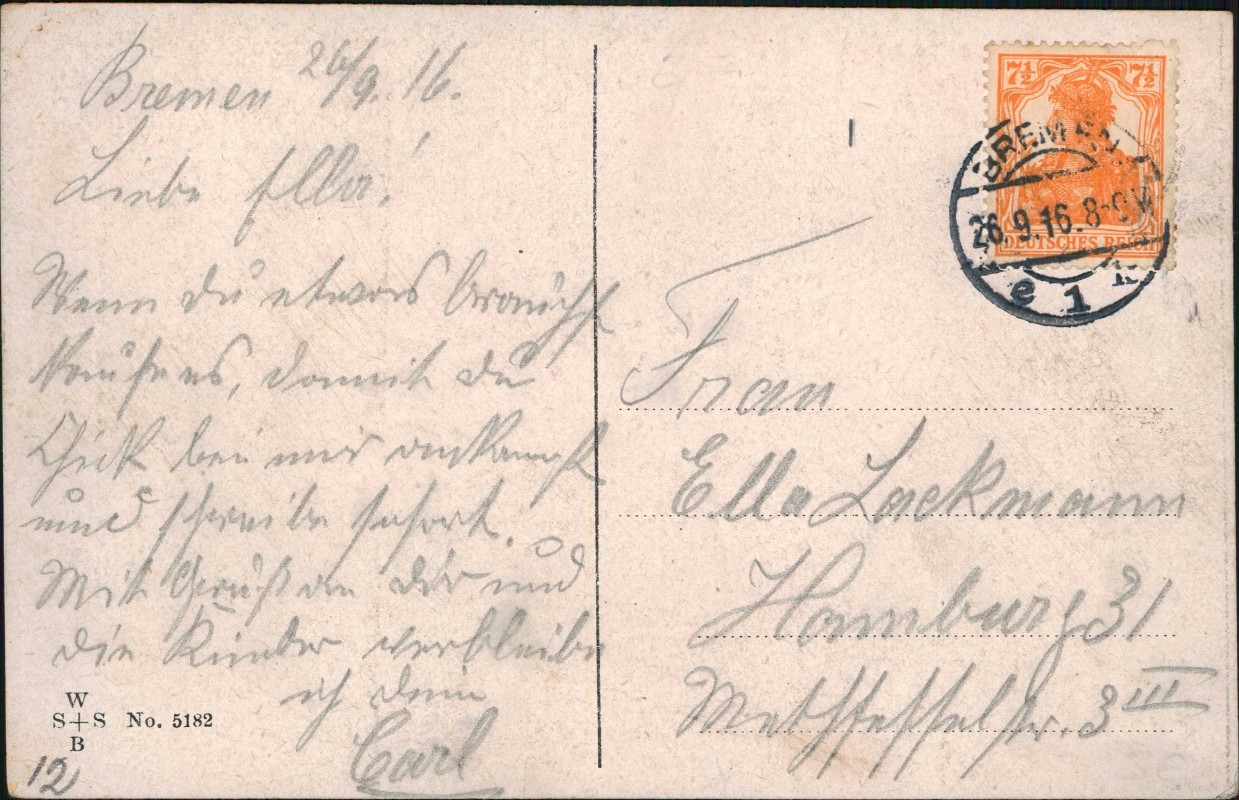 Bremen 26/9.16.
Liebe Ella!
Wenn du etwas brauchst
kaufe es, damit du
bei mir
und schreibe sofort.
Mit Gruß an dir und
die Kinder verbleibe
ich dein
Carl
W
S+S No. 5182
B
12
7½ 7½
DEUTSCHES REICH
BREMEN
26.9.16.8-9V
e 1 k
Frau
Ella Lackmann
Hamburg 31
3 III